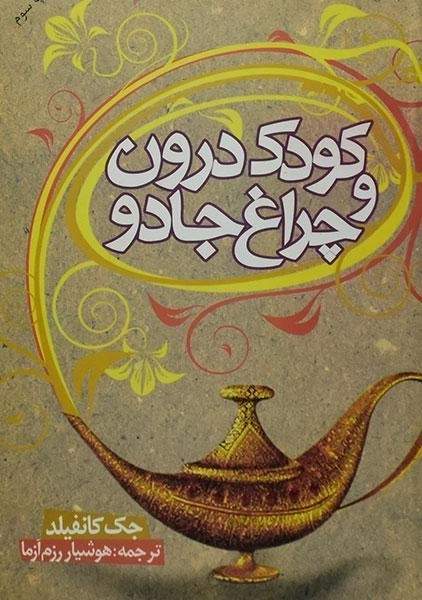 سوم
کودک درون
و
چراغ جادو
جک کانفیلد
ترجمه: هوشیار رزم‌آزما